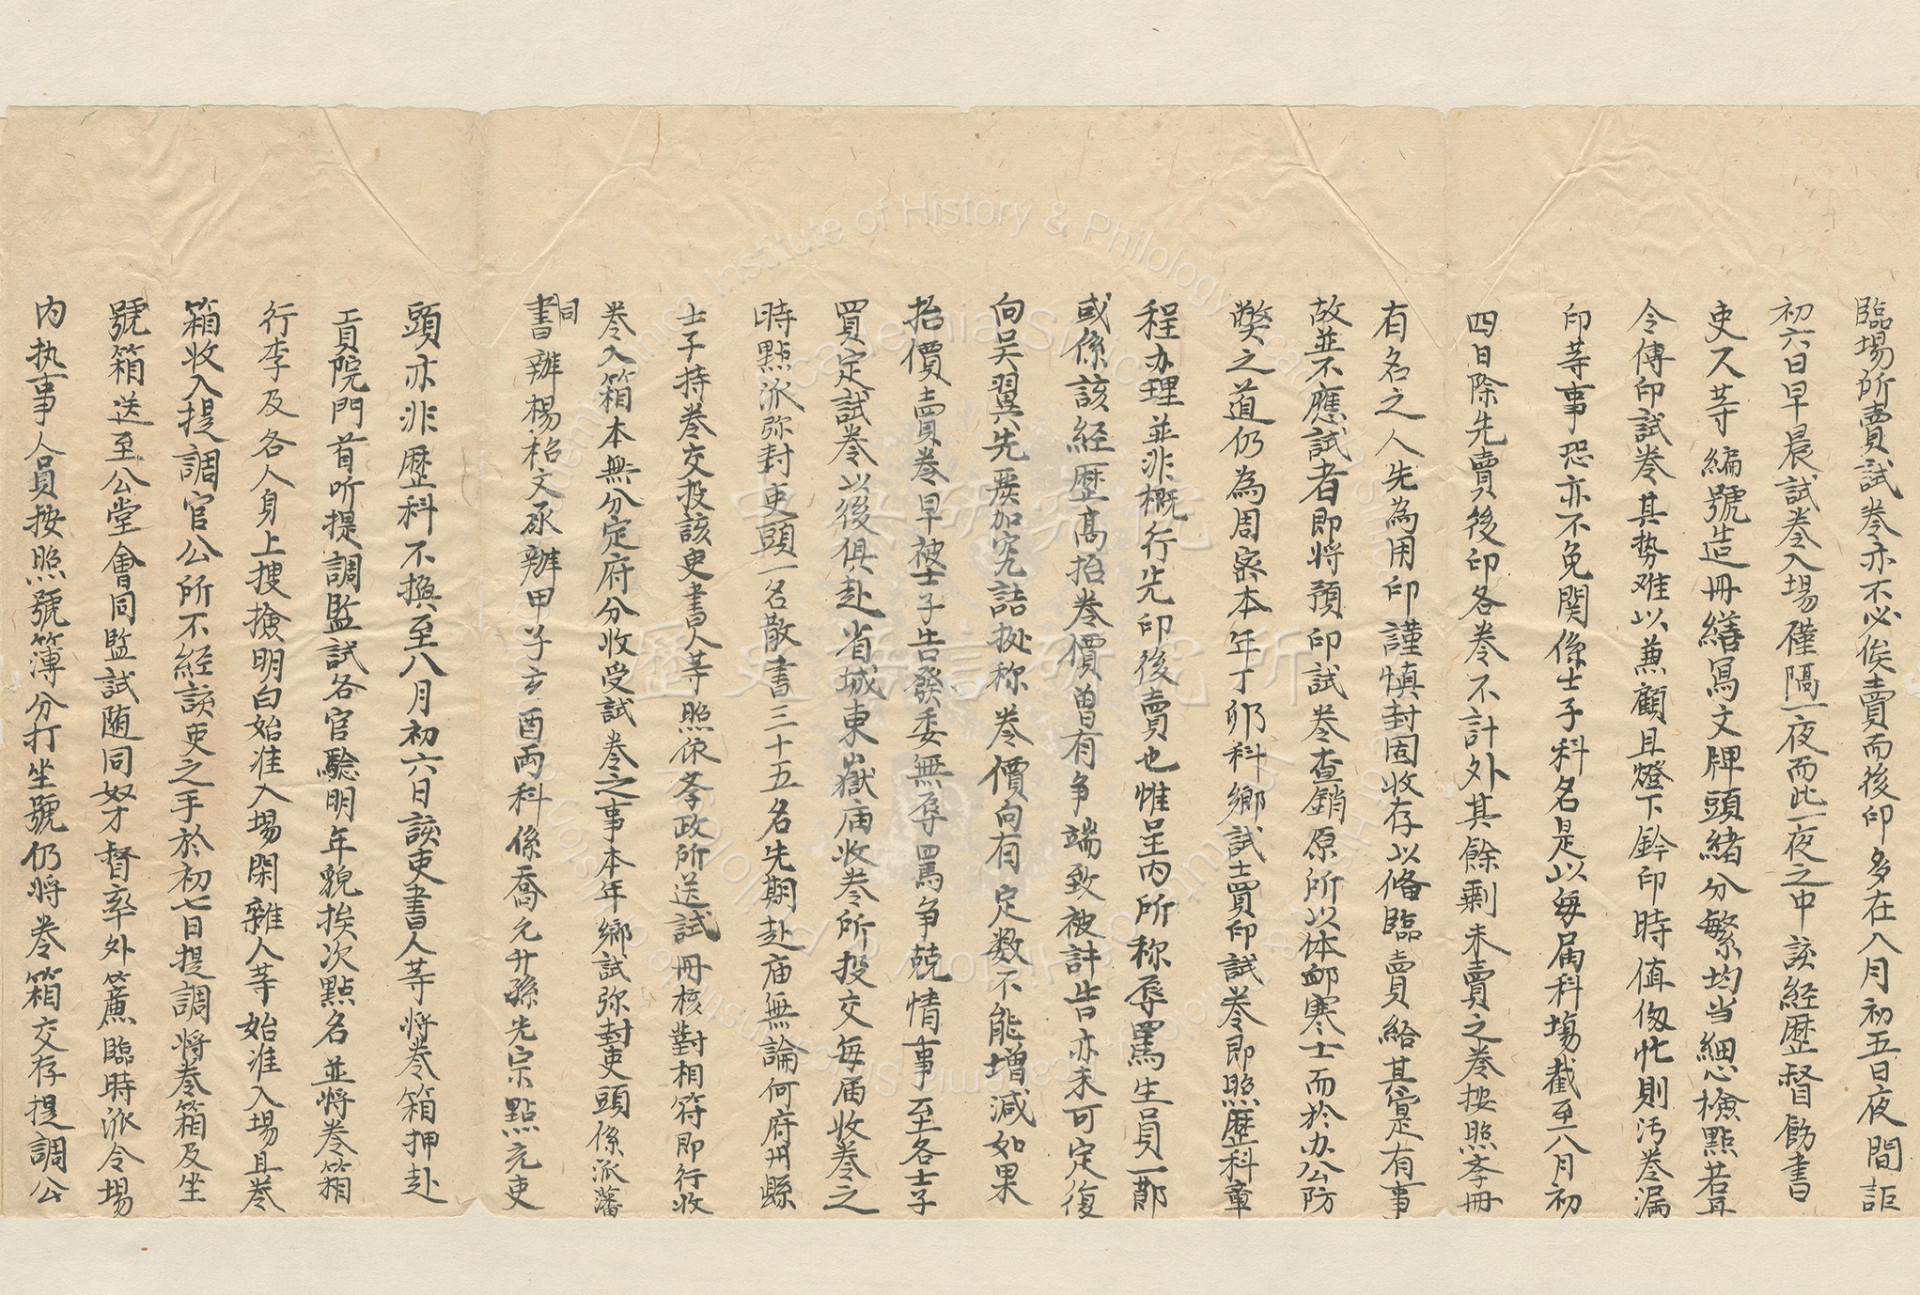 臨場所賣試卷亦不必俟賣而後印多在八月初五日夜間詎
初六日早晨試卷入場僅隔一夜而此一夜之中該經歷督飭書
吏人等編號造冊繕寫文牌頭緒分繁均当細心檢點若再
令傳印試卷其势难以兼顧且燈下鈐印時值匆忙則污卷漏
印等事恐亦不免関係士子科名是以每届科塲截至八月初
四日除先賣後印各卷不計外其餘剩未賣之卷按照季冊
有名之人先為用印謹慎封固收存以俻臨賣給其寔有事
故並不應試者即将預印試卷查銷原所以体衈寒士而於办公防
獘之道仍為周宻本年丁夘科鄉試賣印試卷即照歷科章
程办理並非概行先印後賣也惟呈内所称辱罵生員一節
或係該經歷髙抬卷價曽有争端致被訐告亦未可定復
向吴翼先嚴加究詰㨿称卷價向有定数不能增減如果
抬價賣卷早被士子告發委無辱罵争兢情事至各士子
買定試卷以後俱赴省城東嶽庙收卷所投交每届收卷之
時點派弥封吏頭一名散書三十五名先期赴庙無論何府州縣
士子持卷交投該吏書人等照依李政所送試冊核對相符即行收
卷入箱本無分定府分收受試卷之事本年鄉試弥封吏頭係派藩
同
書辦楊柖文承辦甲子辛酉两科係喬允升孫先宗點充吏
頭亦非歴科不換至八月初六日該吏書人等将卷箱押赴
貢院門首听提調監試各官驗明年貌挨次點名並将卷箱
行李及各人身上搜撿明白始准入場閑雜人等始准入場且卷
箱收入提調官公所不經該吏之手於初七日提調将卷箱及坐
號箱送至公堂會同監試随同奴才督率外簾臨時派令場
内执事人員按照號簿分打坐號仍将卷箱交存提調公
中央研究院
歷史語言研究所
Institute of History & Philology
Academia Sinica